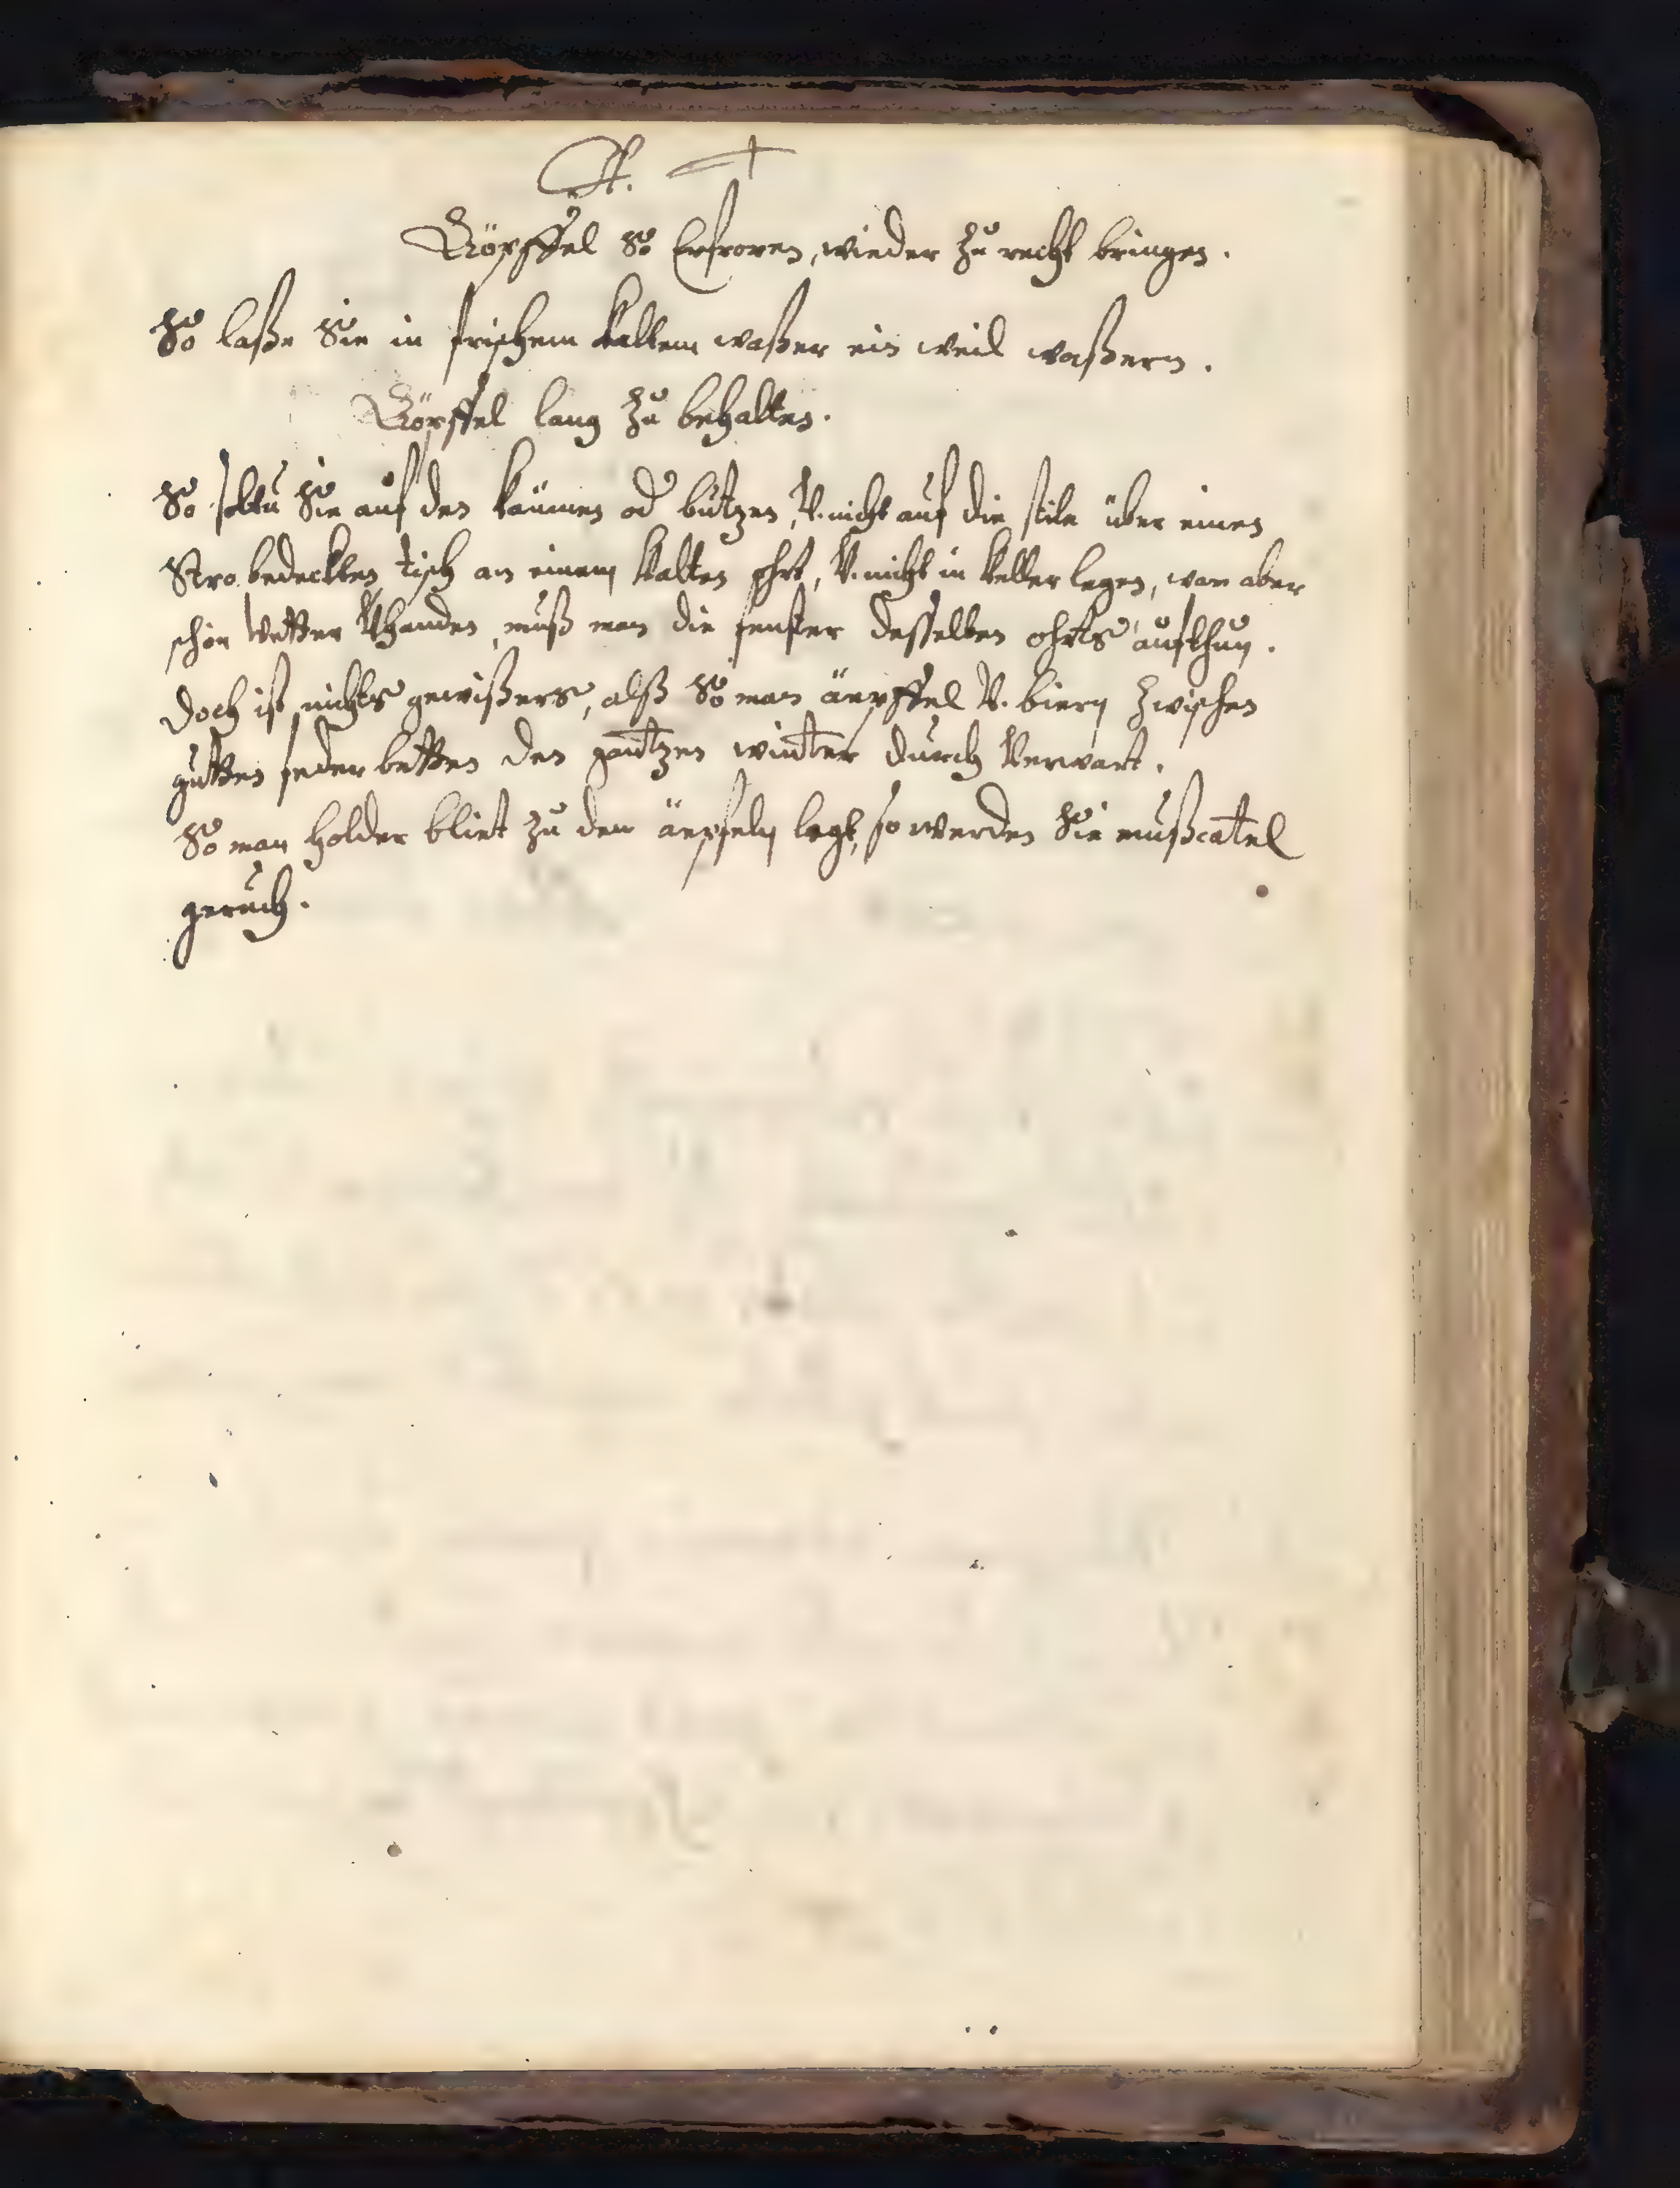 A. +
Äöpffel so Erfroren, wieder zu recht bringen.
So laße Sie in frischem kaltem waßer ein weil waßern.
Äöpffel lang zu behalten.
So soltu Sie auf den käumen od butzen, V. nicht auf die stile über einen
Stro bedeckten tisch an einem kalten ohrt, V. nicht in keller legen, wan aber
schön Wetter Vhanden, muß man die fenster desselben ohrts aufthun.
Doch ist nichts gewißers, alß So man äepffel V. biern zwischen
gutten feder betten den gantzen winter durch Verwart.
So man Holder bliet zu den äepfeln legt, so werden Sie mußcatel
geruch.